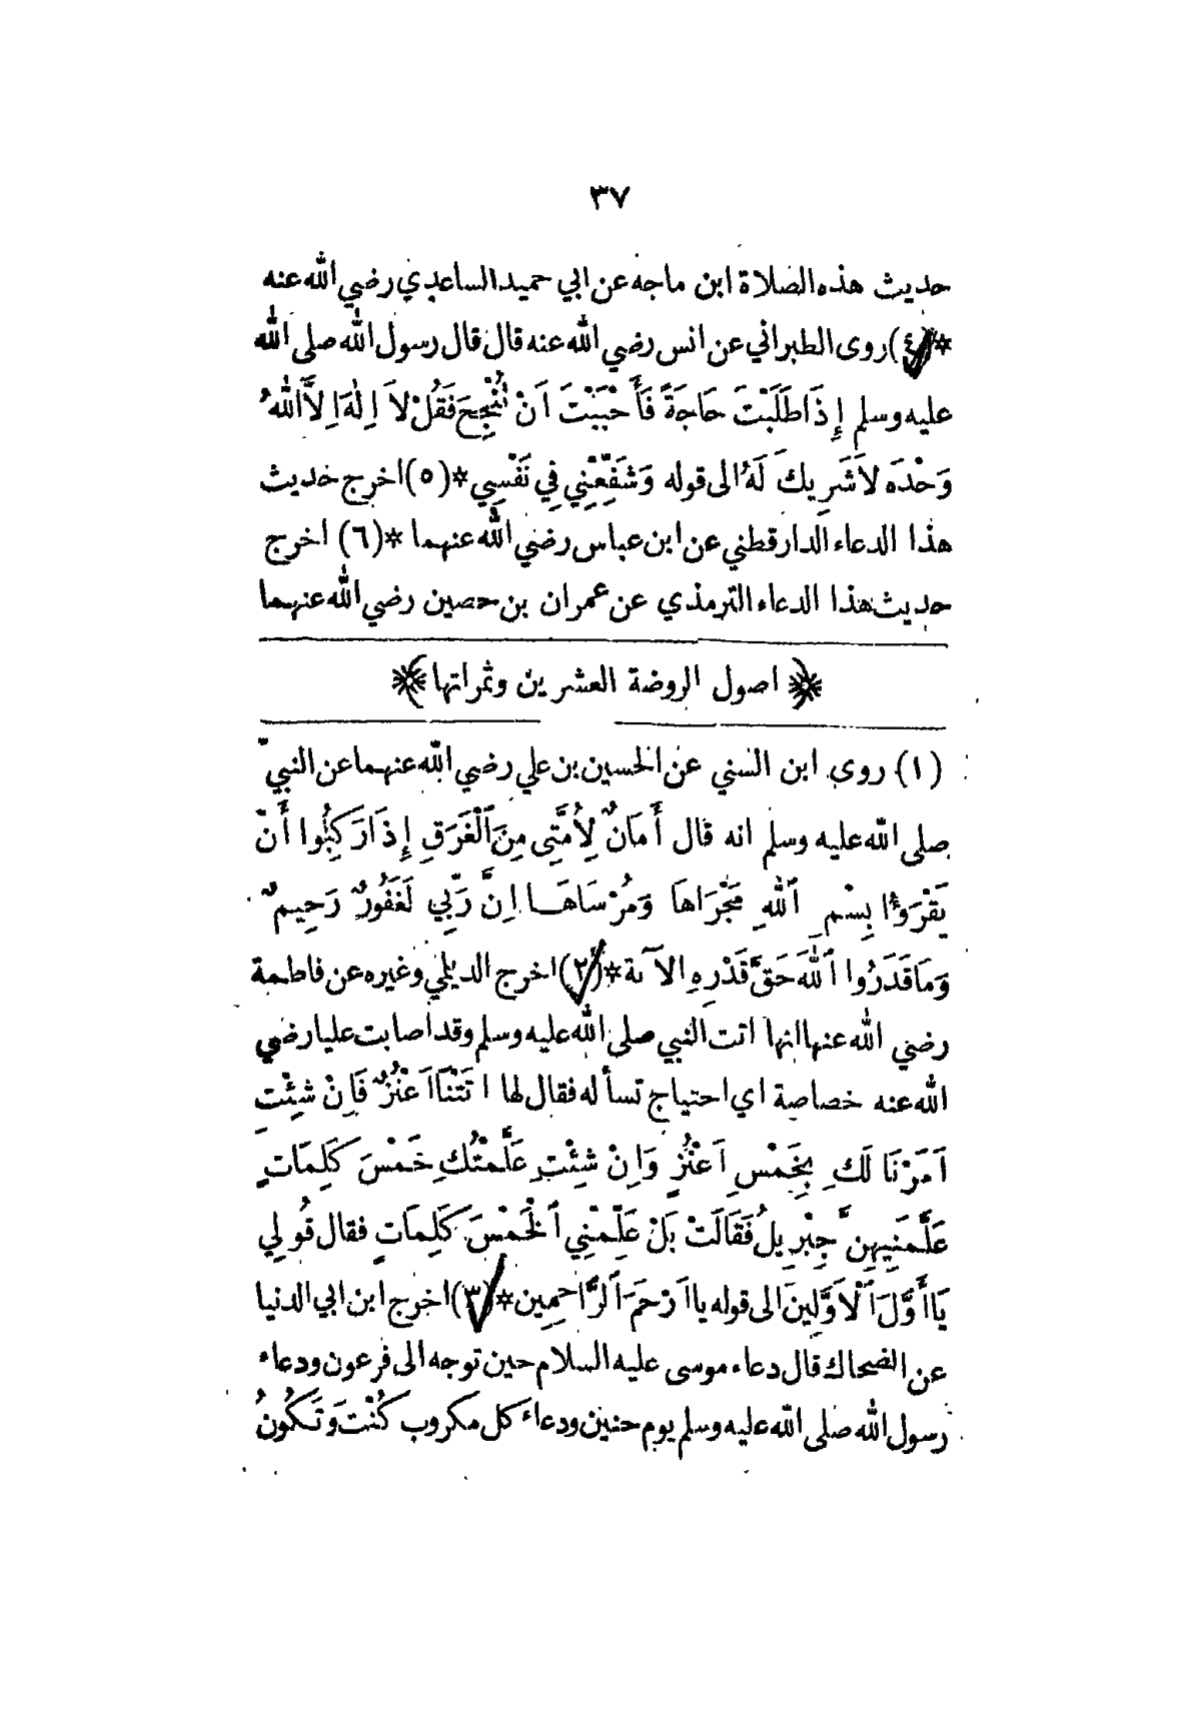 ٣٧
حديث هذه الصلاة ابن ماجه عن ابي حميد الساعدي رضي الله عنه
*(٤) روى الطبراني عن انس رضي الله عنه قال قال رسول الله صلى الله
عليه وسلم إِذَا طَلَبْتَ حَاجَةً فَأَحْبَبْتَ اَنْ تُنْجِحَ فَقُلْ لاَ اِلٰهَ اِلاَّ اللهُ
وَحْدَه لاَشَرِيكَ لَهُ الى قوله وَشَفِّعْنِي فِي نَفْسِي *(٥) اخرج حديث
هذا الدعاء الدارقطني عن ابن عباس رضي الله عنهما *(٦) اخرج
حديث هذا الدعاء الترمذي عن عمران بن حصين رضي الله عنهما
﴿ اصول الروضة العشرين وثمراتها ﴾
(١) روى ابن السني عن الحسين بن علي رضي الله عنهما عن النبيّ
صلى الله عليه وسلم انه قال أَمَانٌ لِأُمَّتِى مِنَ ٱلْغَرَقِ إِذَا رَكِبُوا أَنْ
يَقْرَؤُا بِسْمِ ٱللهِ مَجْرَاهَا وَمُرْسَاهَا اِنَّ رَبِّي لَغَفُورٌ رَحِيمٌ
وَمَا قَدَرُوا ٱللهَ حَقَّ قَدْرِهِ الآية *(٢) اخرج الديلي وغيره عن فاطمة
رضي الله عنها انها اتت النبي صلى الله عليه وسلم وقد اصابت عليا رضي
الله عنه خصاصة اي احتياج تسأله فقال لها اَتَتْنَا اَعْنُزٌ فَاِنْ شِئْتِ
اَمَرْنَا لَكِ بِخَمْسِ اَعْنُزٍ وَاِنْ شِئْتِ عَلَّمْتُكِ خَمْسَ كَلِمَاتٍ
عَلَّمَنِيهِنَّ جِبْرِيلُ فَقَالَتْ بَلْ عَلِّمْنِي ٱلْخَمْسَ كَلِمَاتٍ فقال قُولِي
يَا أَوَّلَ ٱلْأَوَّلِينَ الى قوله يا اَرْحَمَ ٱلرَّاحِمِين *(٣) اخرج ابن ابي الدنيا
عن الضحاك قال دعاء موسى عليه السلام حين توجه الى فرعون ودعاء
رسول الله صلى الله عليه وسلم يوم حنين ودعاء كل مكروب كُنْتَ وَتَكُونُ